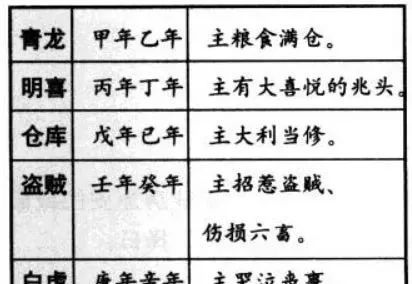 青龙 甲年乙年 主粮食满仓。
明喜 丙年丁年 主有大喜悦的兆头。
仓库 戊年已年 主大利当修。
盗贼 壬年癸年 主招惹盗贼、
伤损六畜。
白虎 庚年辛年 主哭泣丧事